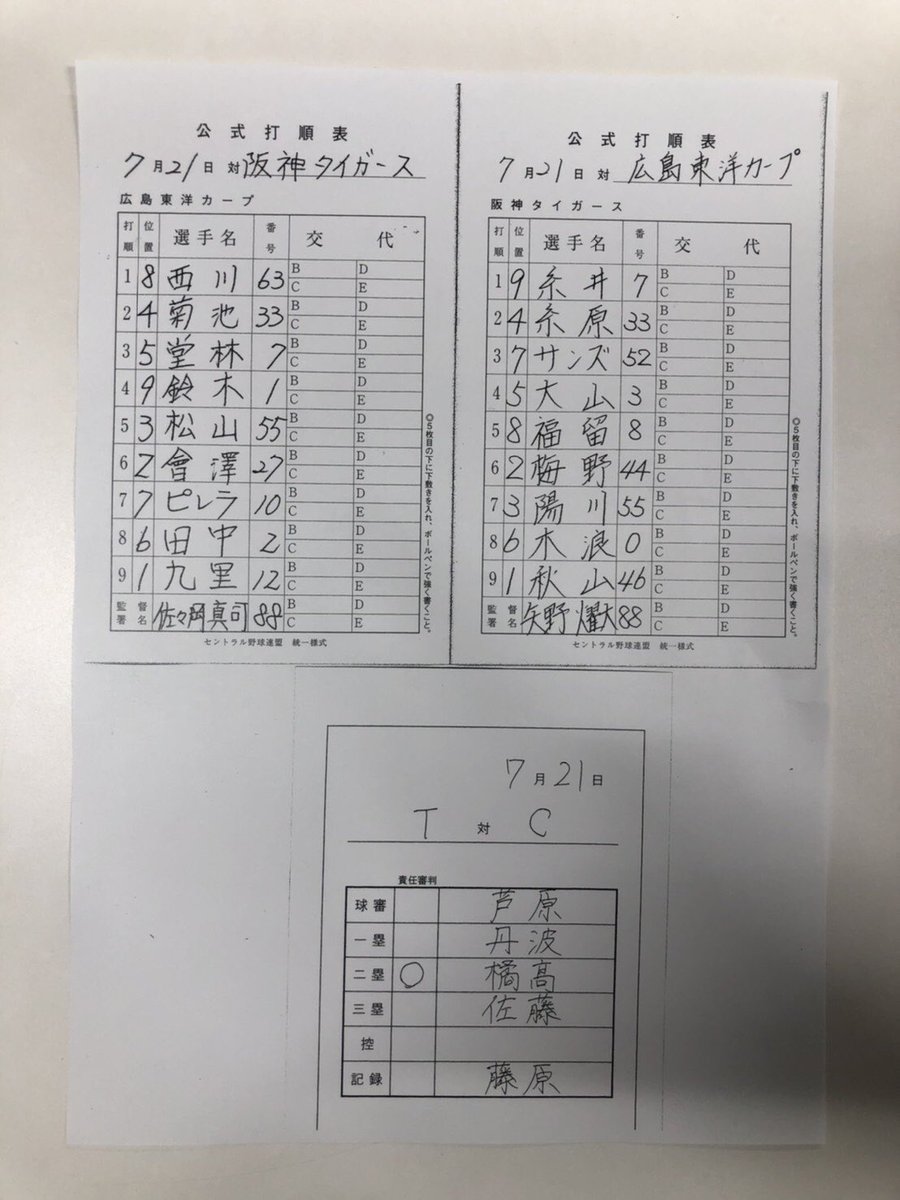 公式打順表
7月21日 対 阪神タイガース
広島東洋カープ
打順 位置 選手名 番号 交代
1 8 西川 63 B D
C E
2 4 菊池 33 B D
C E
3 5 堂林 7 B D
C E
4 9 鈴木 1 B D
C E
5 3 松山 55 B D
C E
6 2 會澤 27 B D
C E
7 7 ピレラ 10 B D
C E
8 6 田中 2 B D
C E
9 1 九里 12 B D
C E
監督署名 佐々岡真司 88 B D
C E
セントラル野球連盟 統一様式
◎5枚目の下に下敷きを入れ、ボールペンで強く書くこと。
公式打順表
7月21日 対 広島東洋カープ
阪神タイガース
打順 位置 選手名 番号 交代
1 9 糸井 7 B D
C E
2 4 糸原 33 B D
C E
3 7 サンズ 52 B D
C E
4 5 大山 3 B D
C E
5 8 福留 8 B D
C E
6 2 梅野 44 B D
C E
7 3 陽川 55 B D
C E
8 6 木浪 0 B D
C E
9 1 秋山 46 B D
C E
監督署名 矢野燿大 88 B D
C E
セントラル野球連盟 統一様式
◎5枚目の下に下敷きを入れ、ボールペンで強く書くこと。
7月21日
T 対 C
責任審判
球審 芦原
一塁 丹波
二塁 ○ 橘高
三塁 佐藤
控
記録 藤原